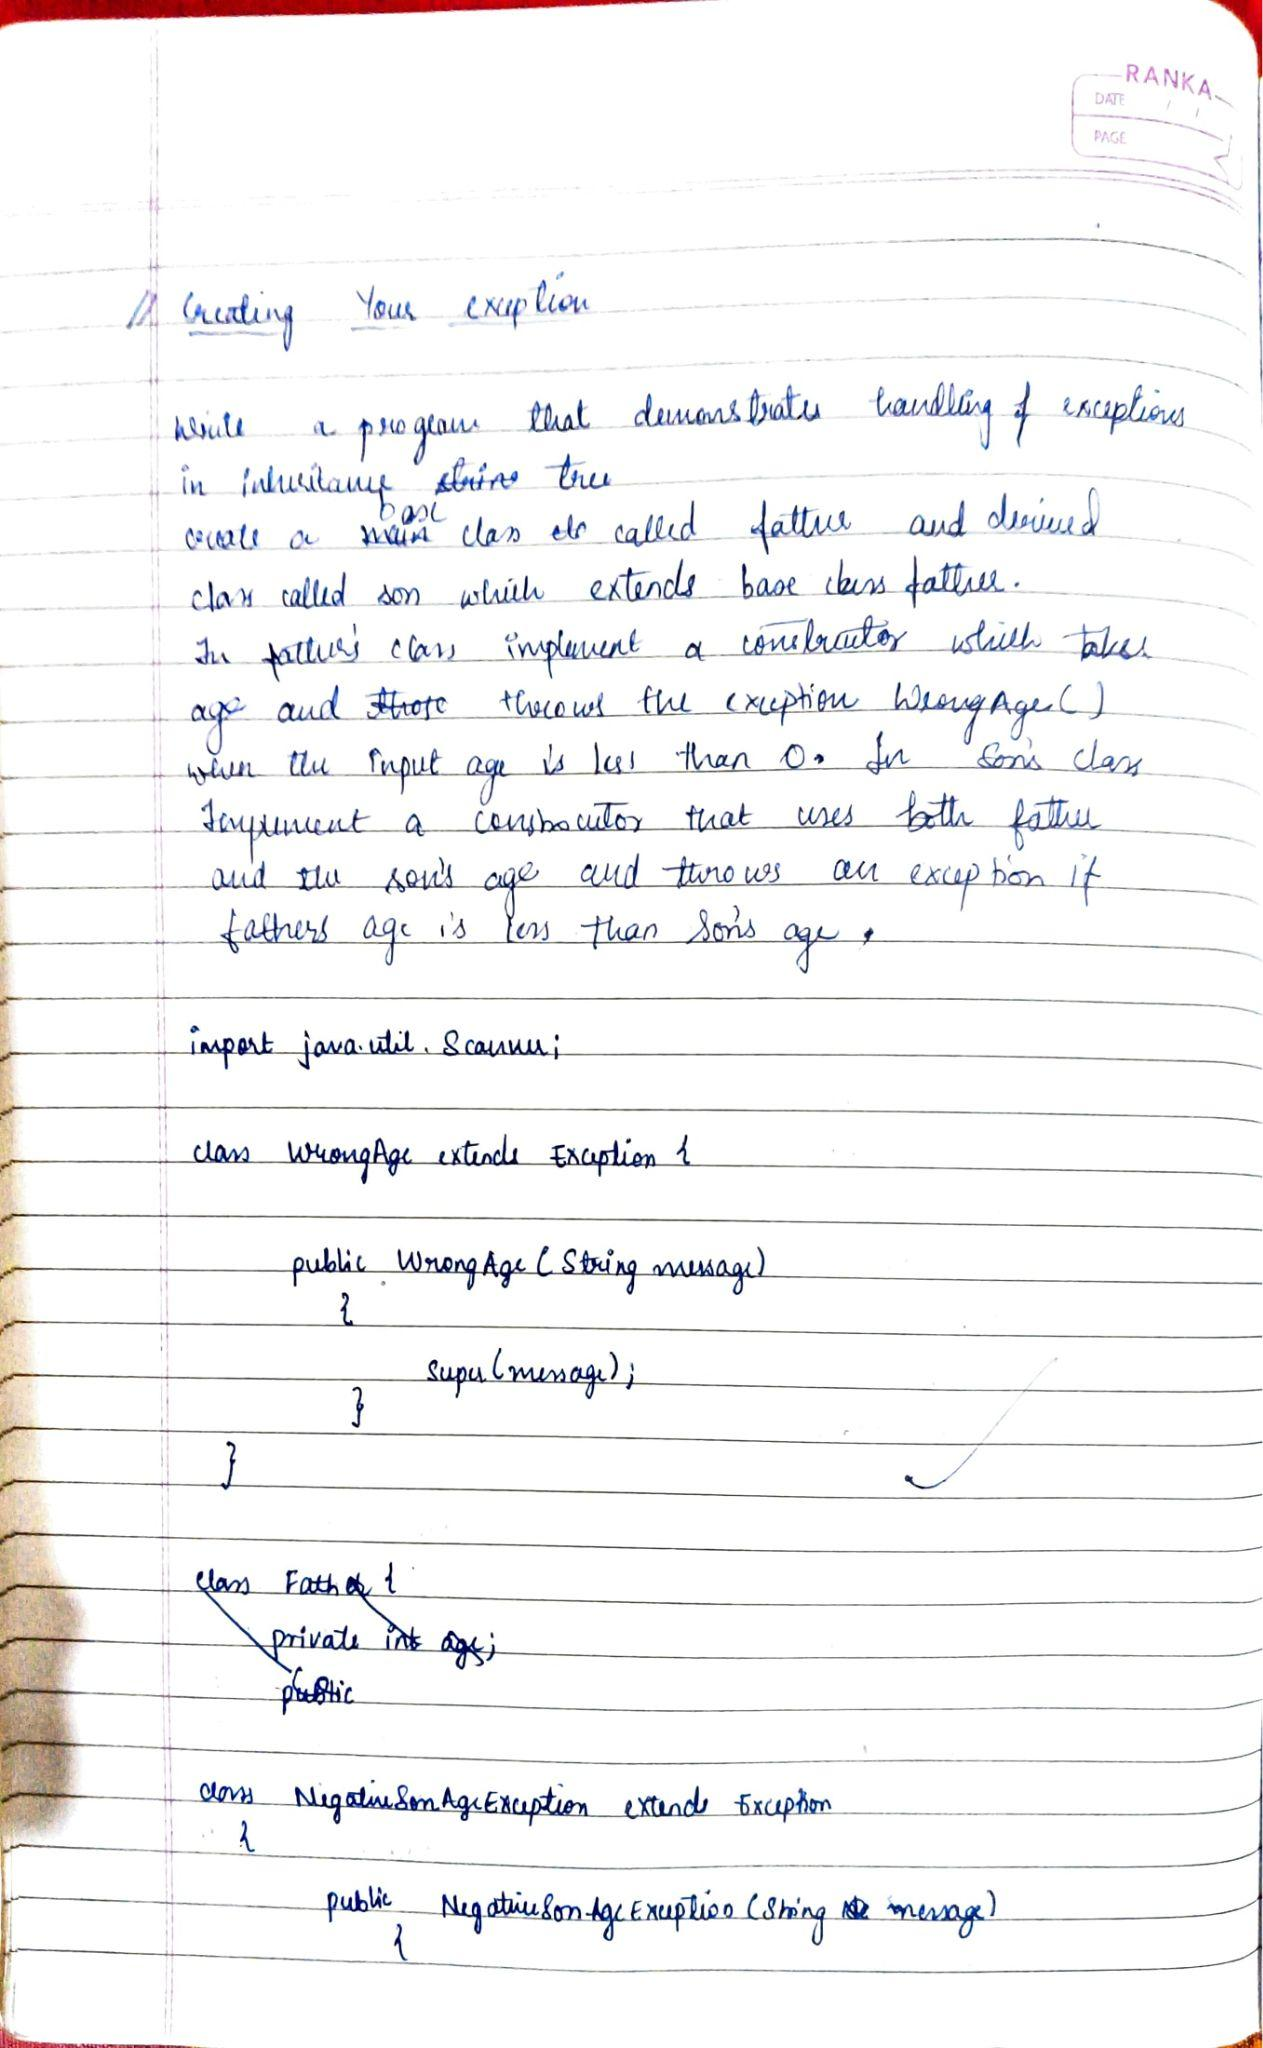 RANKA
DATE / /
PAGE
// Creating Your exception
Write a program that demonstrates handling of exceptions
in inheritance tree
base
create a main class called father and derived
class called son which extends base class father.
In father's class implement a constructor which takes
age and throws the exception WrongAge()
when the input age is less than 0. In son's class
Implement a constructor that uses both father
and the son's age and throws an exception if
fathers age is less than Son's age.
import java.util.Scanner;
class WrongAge extends Exception {
public WrongAge (String message)
{
super(message);
}
}
class Father {
private int age;
public
class NegativeSonAgeException extends Exception
{
public NegativeSonAgeException (String message)
{